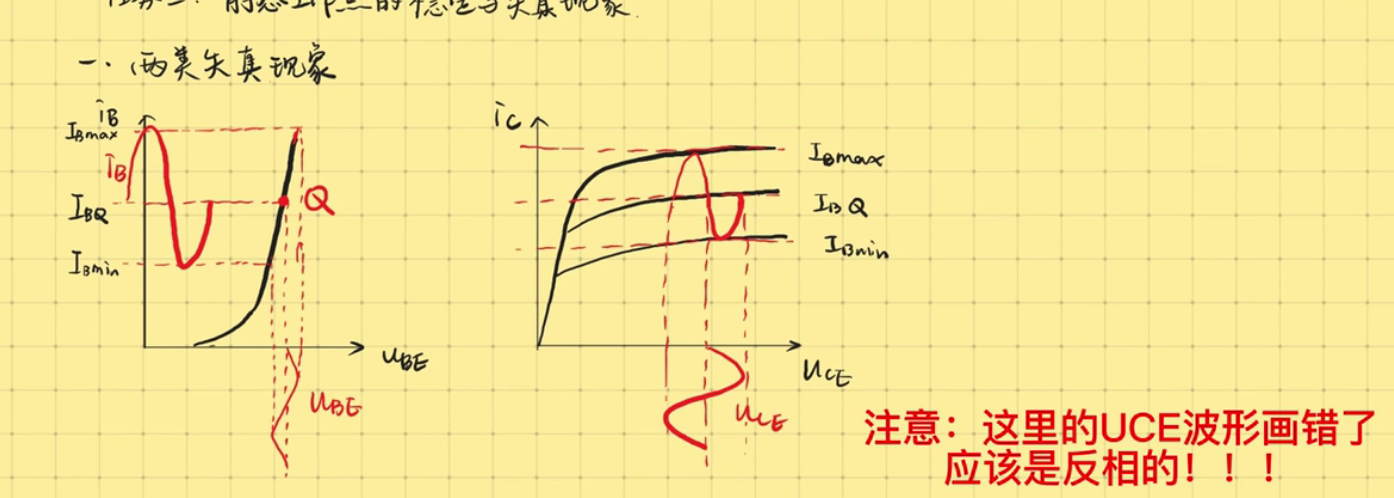 的稳定与失真现象.
一、两类失真现象
iB
IBmax
iB
IBQ
Q
IBmin
uBE
uBE
iC
IBmax
IBQ
IBmin
uCE
uCE
注意：这里的UCE波形画错了
应该是反相的！！！